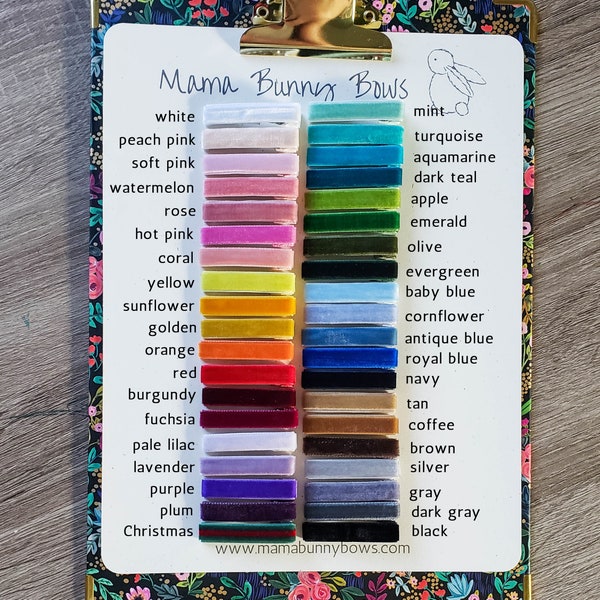 Mama Bunny Bows
white
peach pink
soft pink
watermelon
rose
hot pink
coral
yellow
sunflower
golden
orange
red
burgundy
fuchsia
pale lilac
lavender
purple
plum
Christmas
mint
turquoise
aquamarine
dark teal
apple
emerald
olive
evergreen
baby blue
cornflower
antique blue
royal blue
navy
tan
coffee
brown
silver
gray
dark gray
black
www.mamabunnybows.com